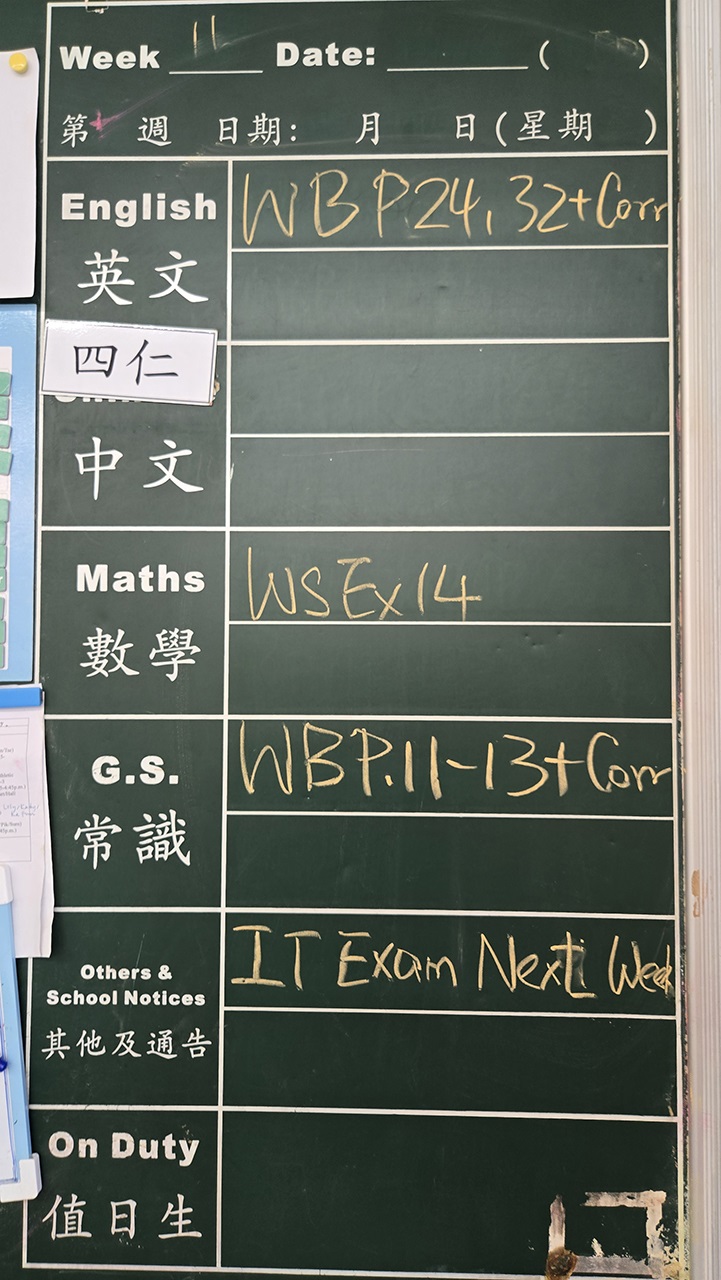 Week 11 Date: ________ ( )
第 週 日期: 月 日(星期 )
English WB P.24, 32+Corr
英文
四仁
中文
Maths WS Ex 14
數學
G.S. WB P.11-13+Corr
常識
Others &
School Notices IT Exam Next Week
其他及通告
On Duty
值日生